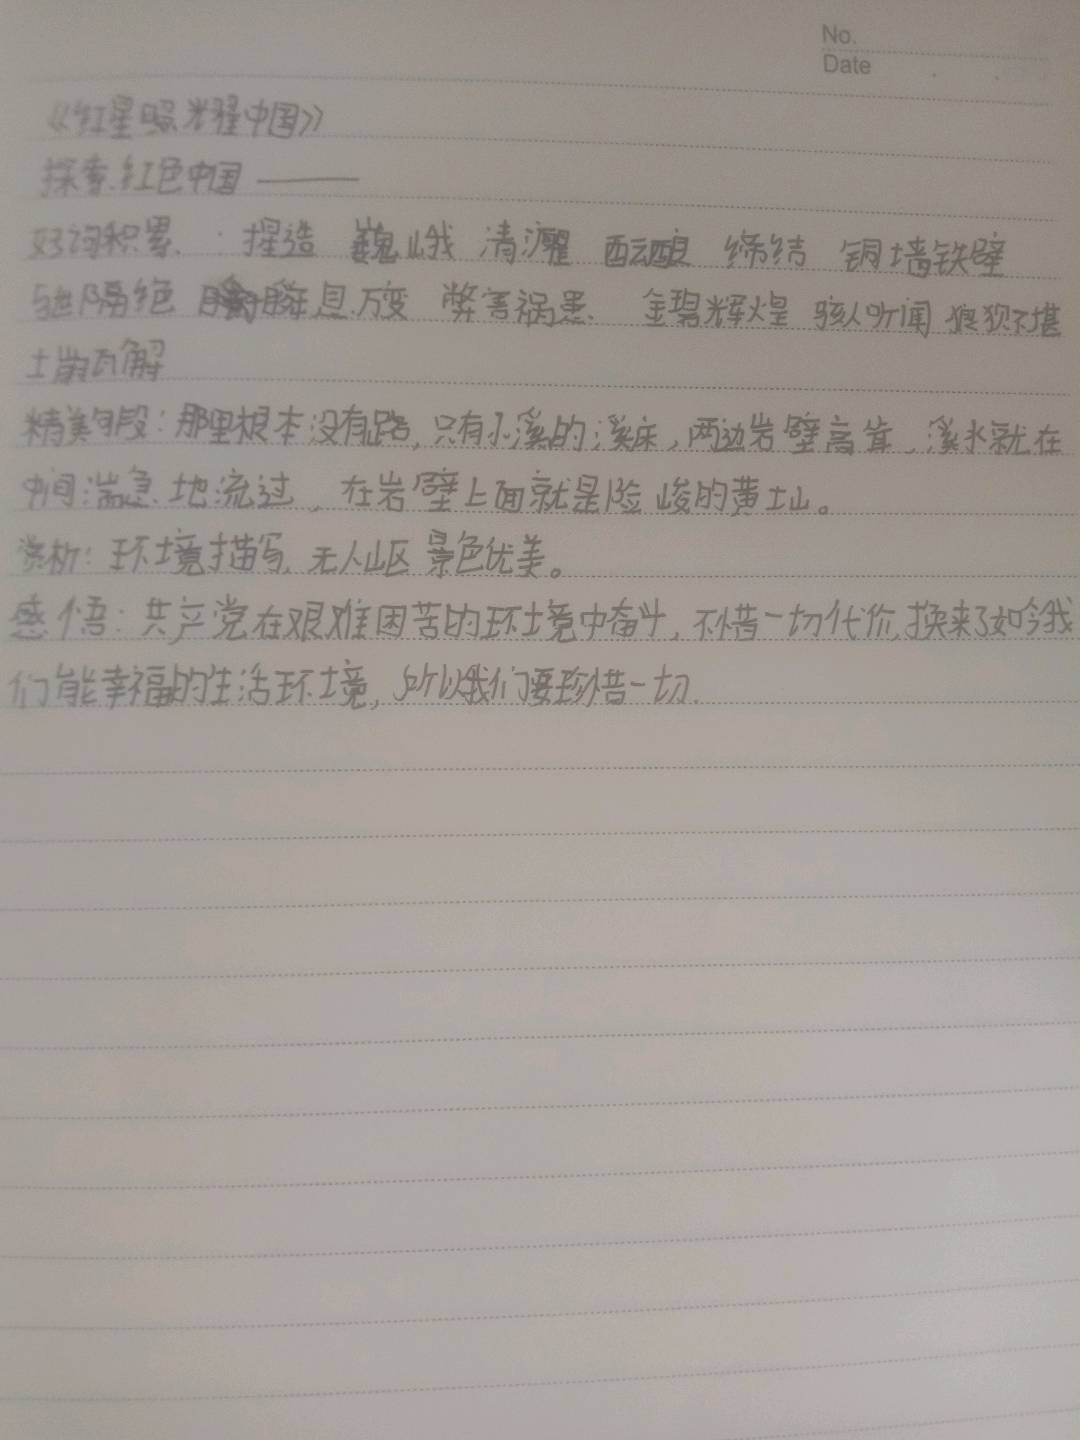 No.
Date
《红星照耀中国》
探索红色中国 ——
好词积累: 捏造 巍峨 清癯 酝酿 缔结 铜墙铁壁
与世隔绝 瞬息万变 弊害祸患 金碧辉煌 骇人听闻 狼狈不堪
土崩瓦解
精美句段:那里根本没有路,只有小溪的溪床,两边岩壁高耸,溪水就在
中间湍急地流过,在岩壁上面就是险峻的黄土山。
赏析:环境描写,无人山区景色优美。
感悟:共产党在艰难困苦的环境中奋斗,不惜一切代价,换来了如今我
们能幸福的生活环境,所以我们要珍惜一切.